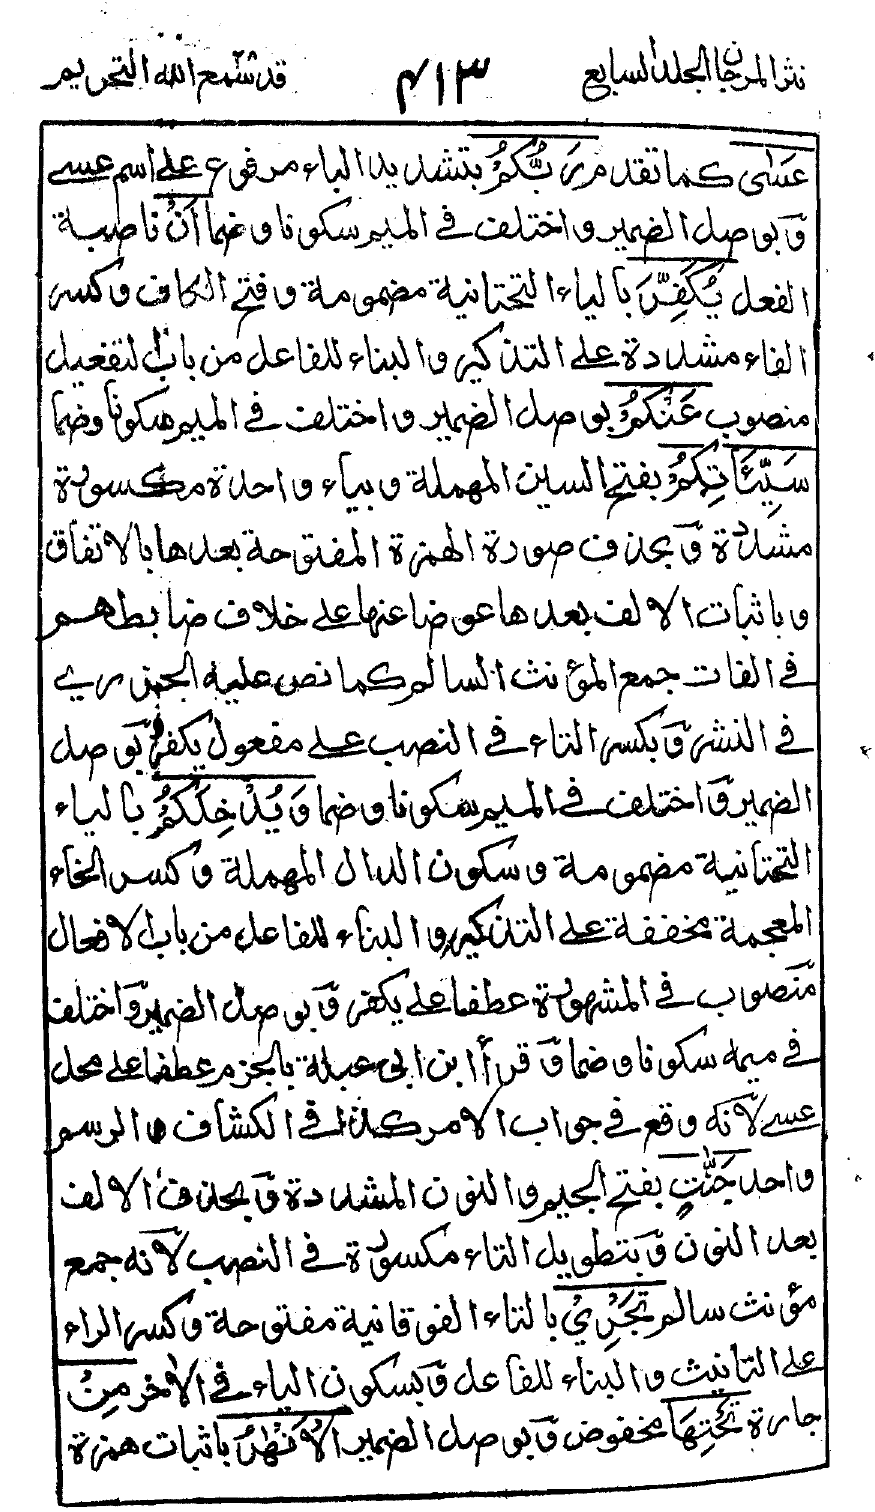 نثر المرجان الجلد السابع
۷۱۳
قد سمع الله التحريم
عَسٰى كما تقدم رَبُّكُمْ بتشديد الباء مرفوع على اسم عسے
وَ بوصل الضمير و اختلف في الميم سكونا و ضما اَنْ ناصبة
الفعل يُكَفِّرَ بالياء التحتانية مضمومة و فتح الكاف و كسر
الفاء مشددة على التذكير و البناء للفاعل من باب التفعيل
منصوب عَنْكُمْ بوصل الضمير و اختلف في الميم سكونا وضما
سَيِّئَاتِكُمْ بفتح السين المهملة و بياء واحدة مكسورة
مشددة وَ بحذف صورة الهمزة المفتوحة بعدها بالاتفاق
و باثبات الالف بعدها عوضا عنها على خلاف ضابطهم
في الفات جمع المؤنث السالم كما نص عليه الجزري
في النشر وَ بكسر التاء في النصب على مفعول يكفر بوصل
الضمير وَ اختلف في الميم سكونا و ضما وَيُدْخِلَكُمْ بالياء
التحتانية مضمومة و سكون الدال المهملة و كسر الخاء
المعجمة مخففة على التذكير و البناء للفاعل من باب الافعال
منصوب في المشهورة عطفا على يكفر وَ بوصل الضمير وَ اختلف
في ميمه سكونا و ضما وَ قرأ ابن ابي عبلة بالجزم عطفا على محل
عسے لانه وقع في جواب الامر كذا في الكشاف و الرسم
واحد جَنّٰتٍ بفتح الجيم و النون المشددة وَ بحذف الالف
بعد النون وَ بتطويل التاء مكسورة في النصب لانه جمع
مؤنث سالم تَجْرِيْ بالتاء الفوقانية مفتوحة و كسر الراء
على التانيث و البناء للفاعل وَ بسكون الياء في الاٰخر مِنْ
جارة تَحْتِهَا مخفوض وَ بوصل الضمير الْاَنْهٰرُ باثبات همزة